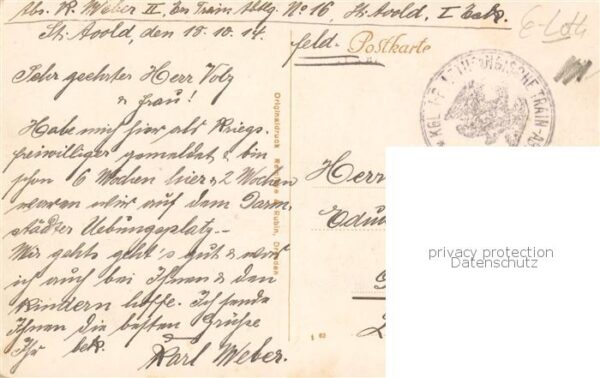 Abs. K. Weber II, Ers. Train Abtlg. No 16, St. Avold, I Esk.
St. Avold, den 18.10.14.
Sehr geehrter Herr Volz
& Frau!
Habe mich hier als Kriegs-
freiwilliger gemeldet & bin
schon 6 Wochen hier & 2 Wochen
waren wir auf dem Darm-
städter Uebungsplatz.-
Mir gehts geht's gut & was
ich auch bei Ihnen & den
Kindern hoffe. Ich sende
Ihnen die besten Grüße
Ihr bek.
Karl Weber.
Originaldruck & Rubin, Dresden
feld. Postkarte
E-Loth
KGL. LOTHRINGISCHE TRAIN-
Herr
Edu
privacy protection
Datenschutz